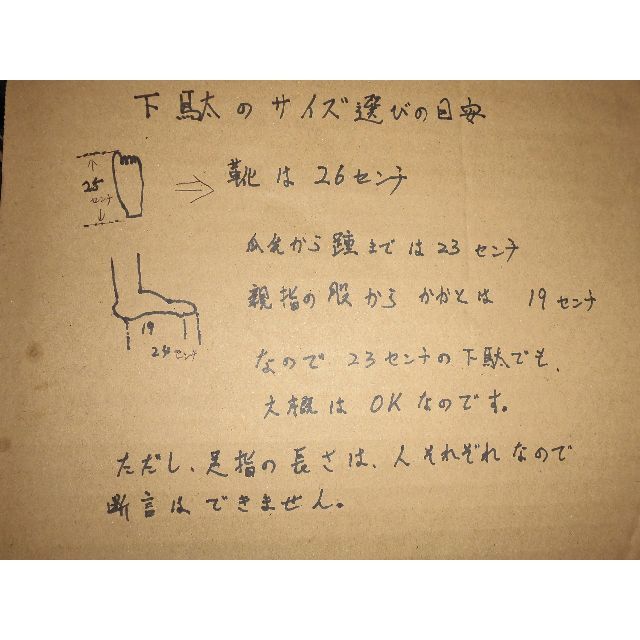 下駄のサイズ選びの目安
25
センチ
靴は26センチ
爪先から踵までは23センチ
親指の股からかかとは 19センチ
19
24センチ
なので23センチの下駄でも、
大概はOKなのです。
ただし、足指の長さは、人それぞれなので
断言はできません。